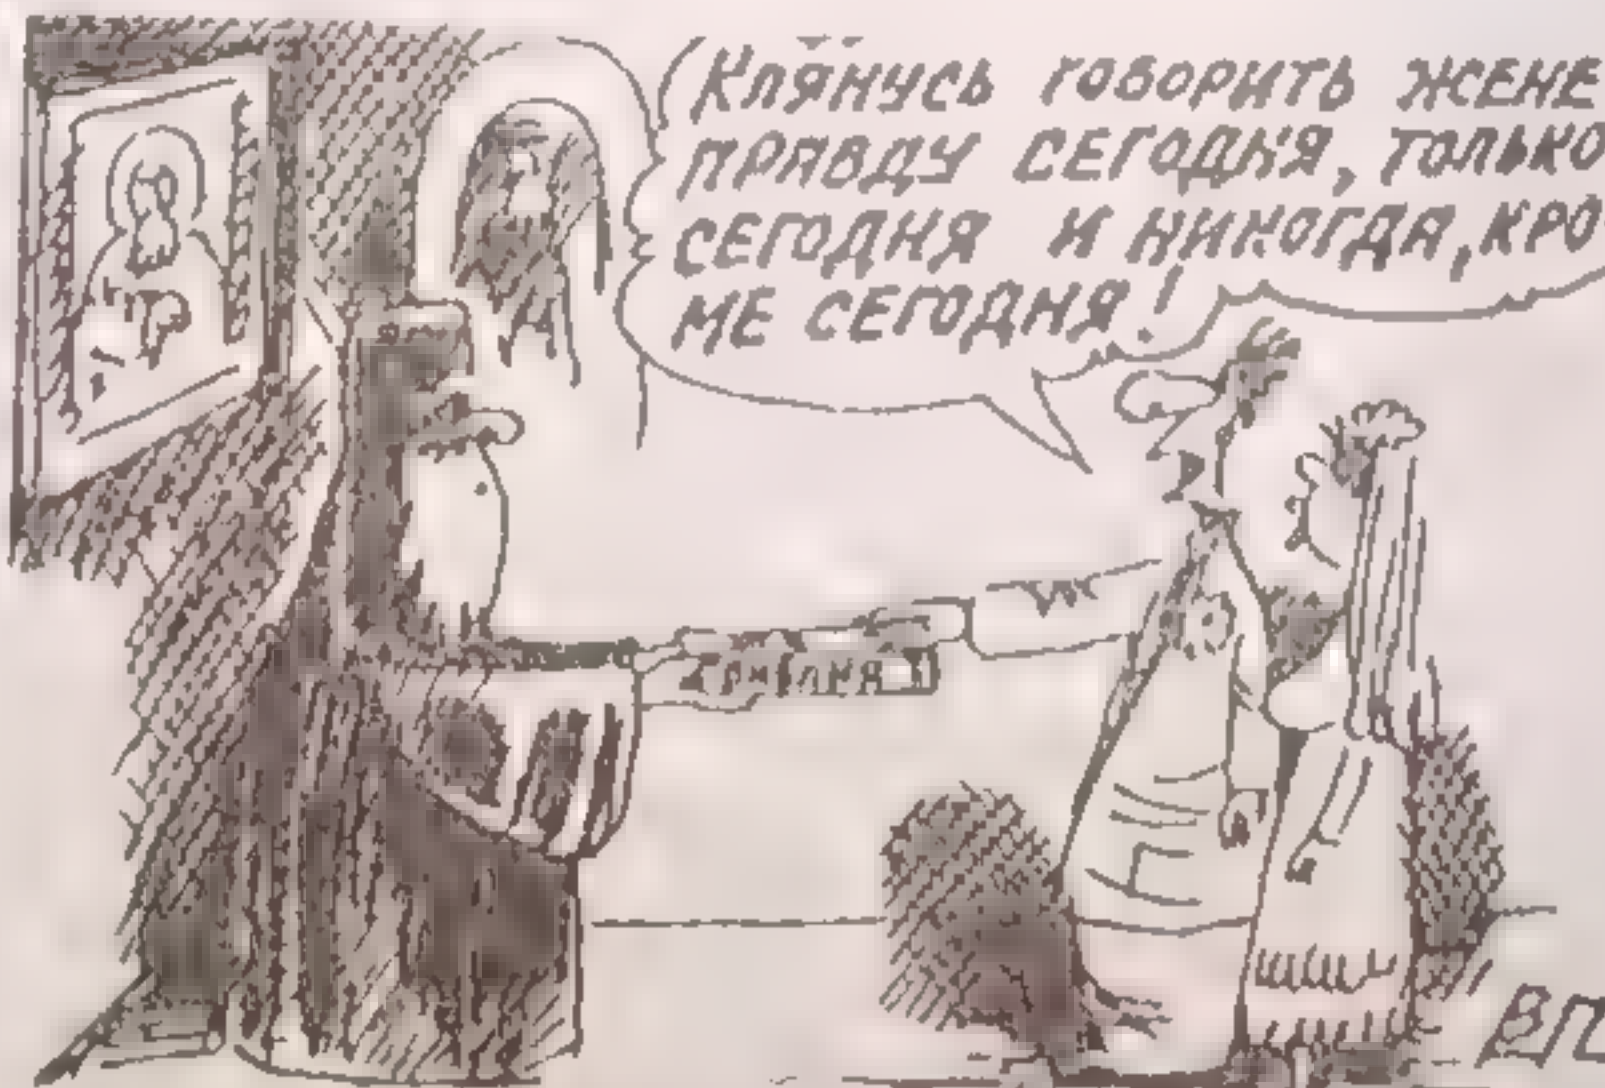 Клянусь говорить жене
правду сегодня, только
сегодня и никогда, кро-
ме сегодня!
ВП